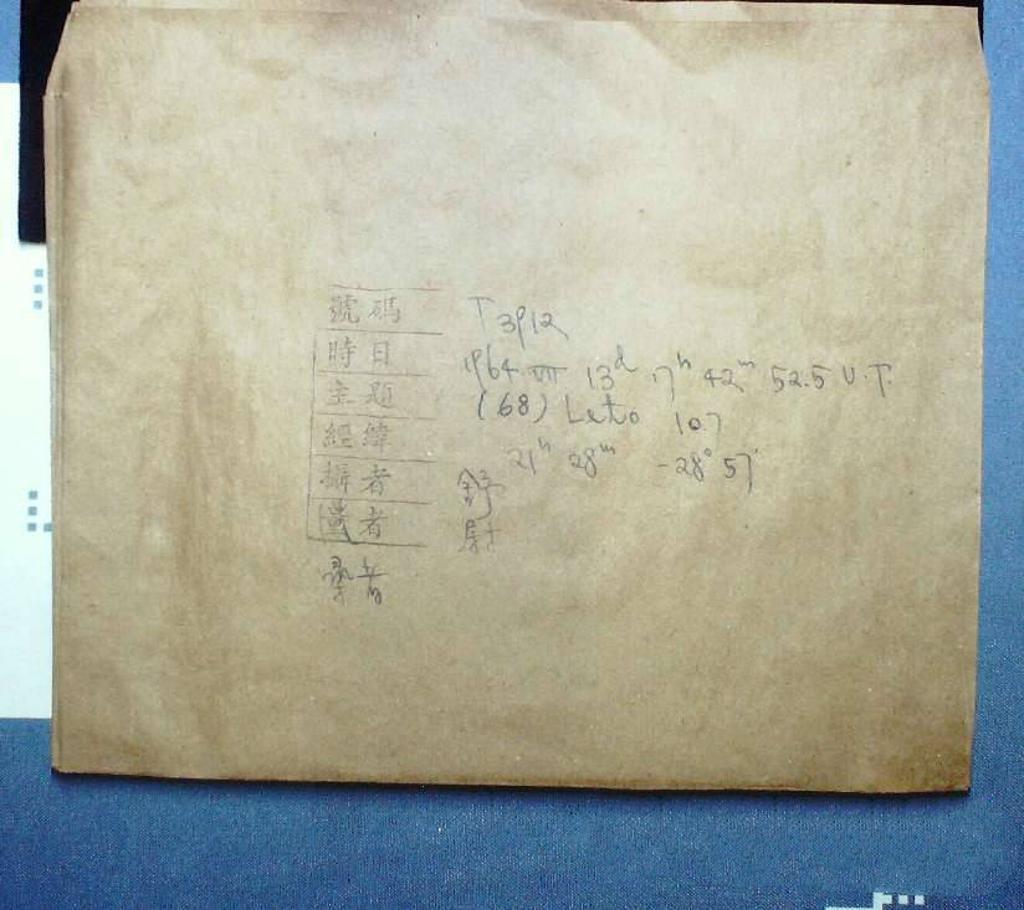 號碼 T 3912
時日 1964 VII 13d 17h 42m 52.5 U.T.
主題 (68) Leto 10.7
經緯 21h 28m -28° 57'
攝者 舒
量者 尉
者